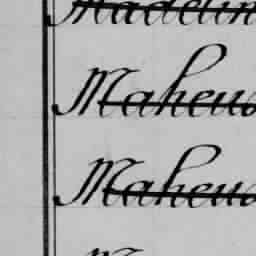 Madelin
Maheu
Maheu